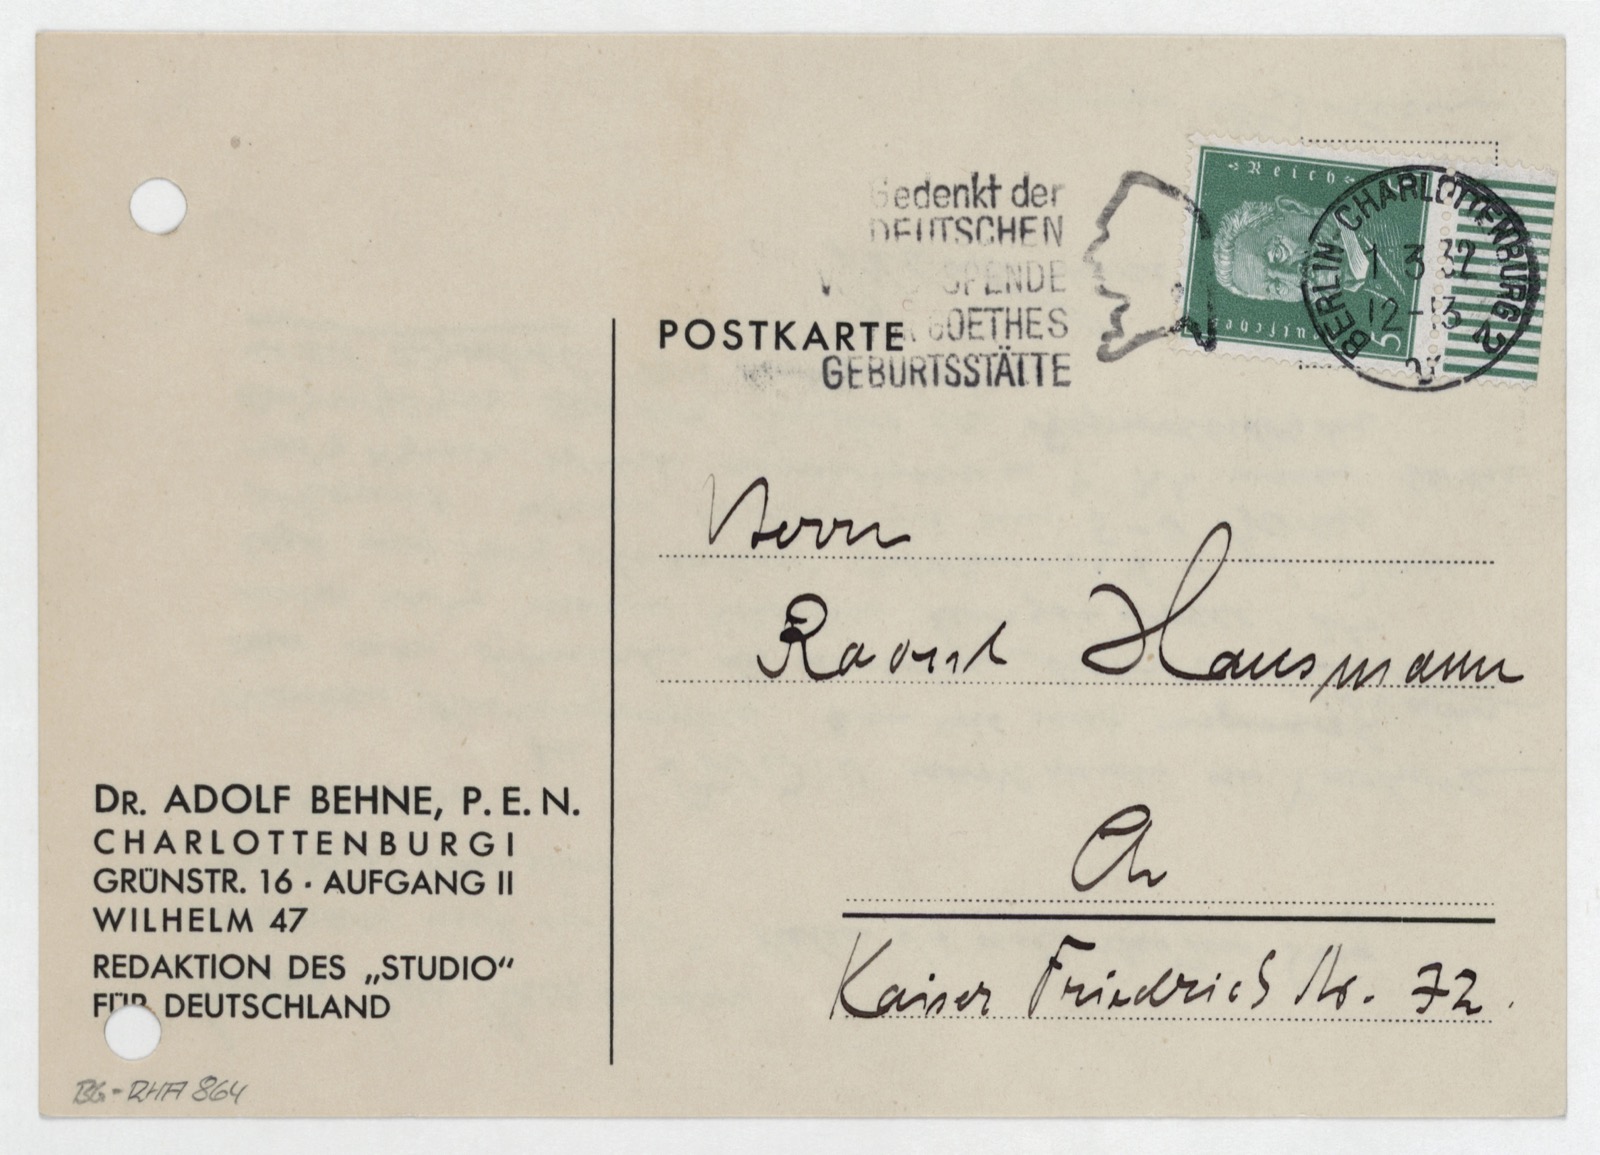 Gedenkt der
DEUTSCHEN
SPENDE
GOETHES
GEBURTSSTÄTTE
Reich
5
BERLIN-CHARLOTTENBURG 2
1 3 32
12-13
POSTKARTE
Herrn
Raoul Hausmann
Ch
Kaiser Friedrich Str. 72.
DR. ADOLF BEHNE, P. E. N.
CHARLOTTENBURG I
GRÜNSTR. 16 · AUFGANG II
WILHELM 47
REDAKTION DES „STUDIO“
FÜR DEUTSCHLAND
BG-RHA 864